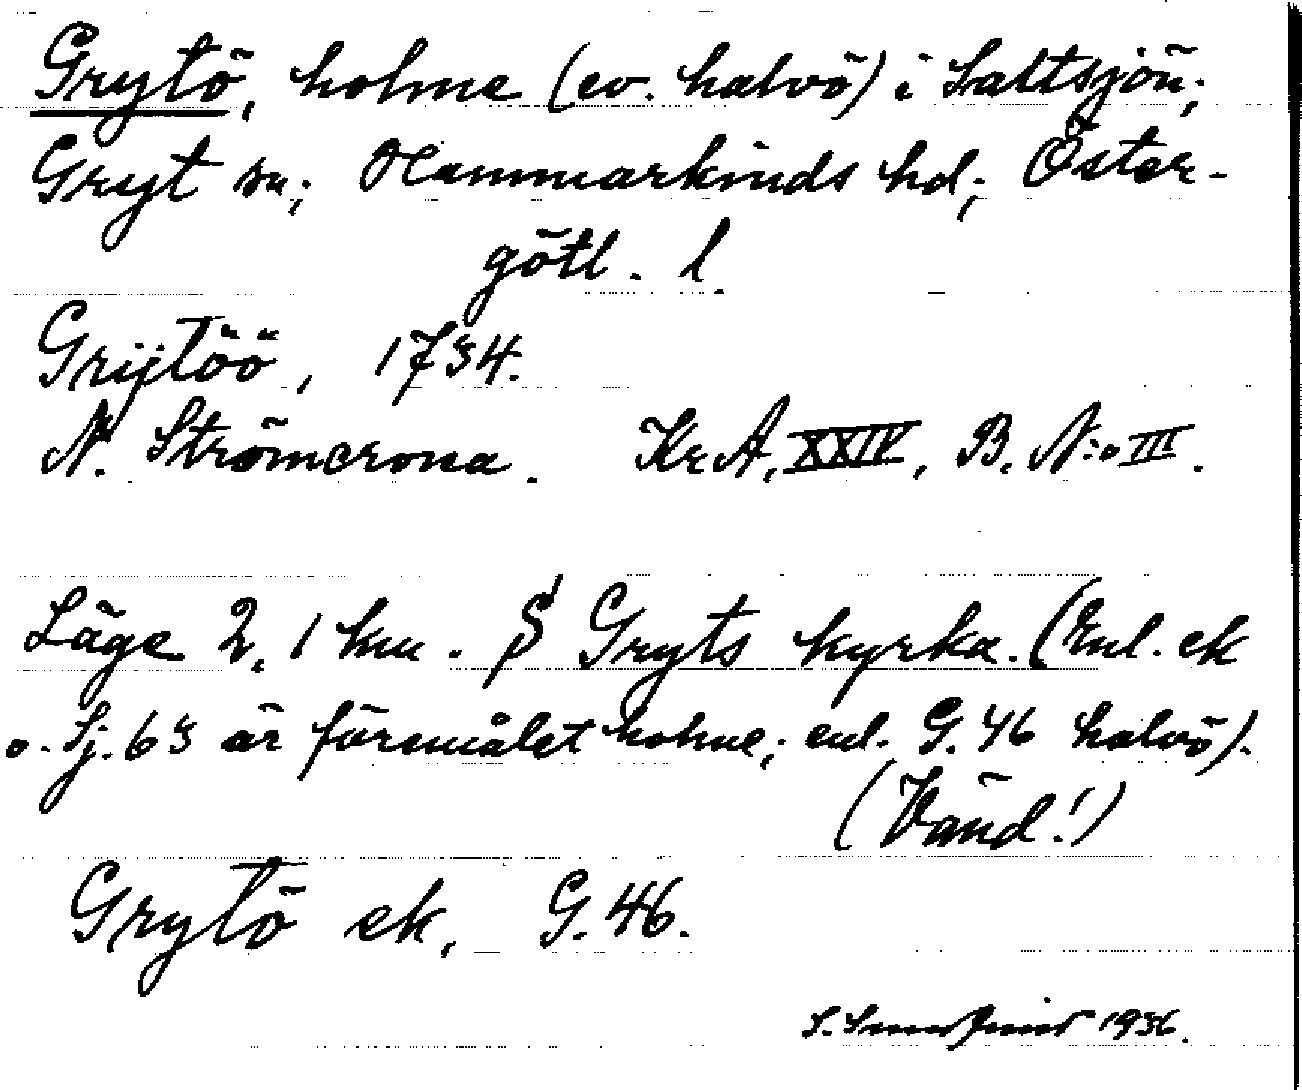 Grytö, holme (ev. halvö) i Saltsjön;
Gryt sn; Hammarkinds hd; Öster-
götl. l.
Grijtöö, 1734.
N. Strömcrona. Kr.A. XXIV, B. N:o III.
Läge 2,1 km. S Gryts kyrka. (Enl. ek
o. Sj. 63 är föremålet holme; enl. G. 46 halvö).
(Vänd!)
Grytö ek, G. 46.
S. 1936.